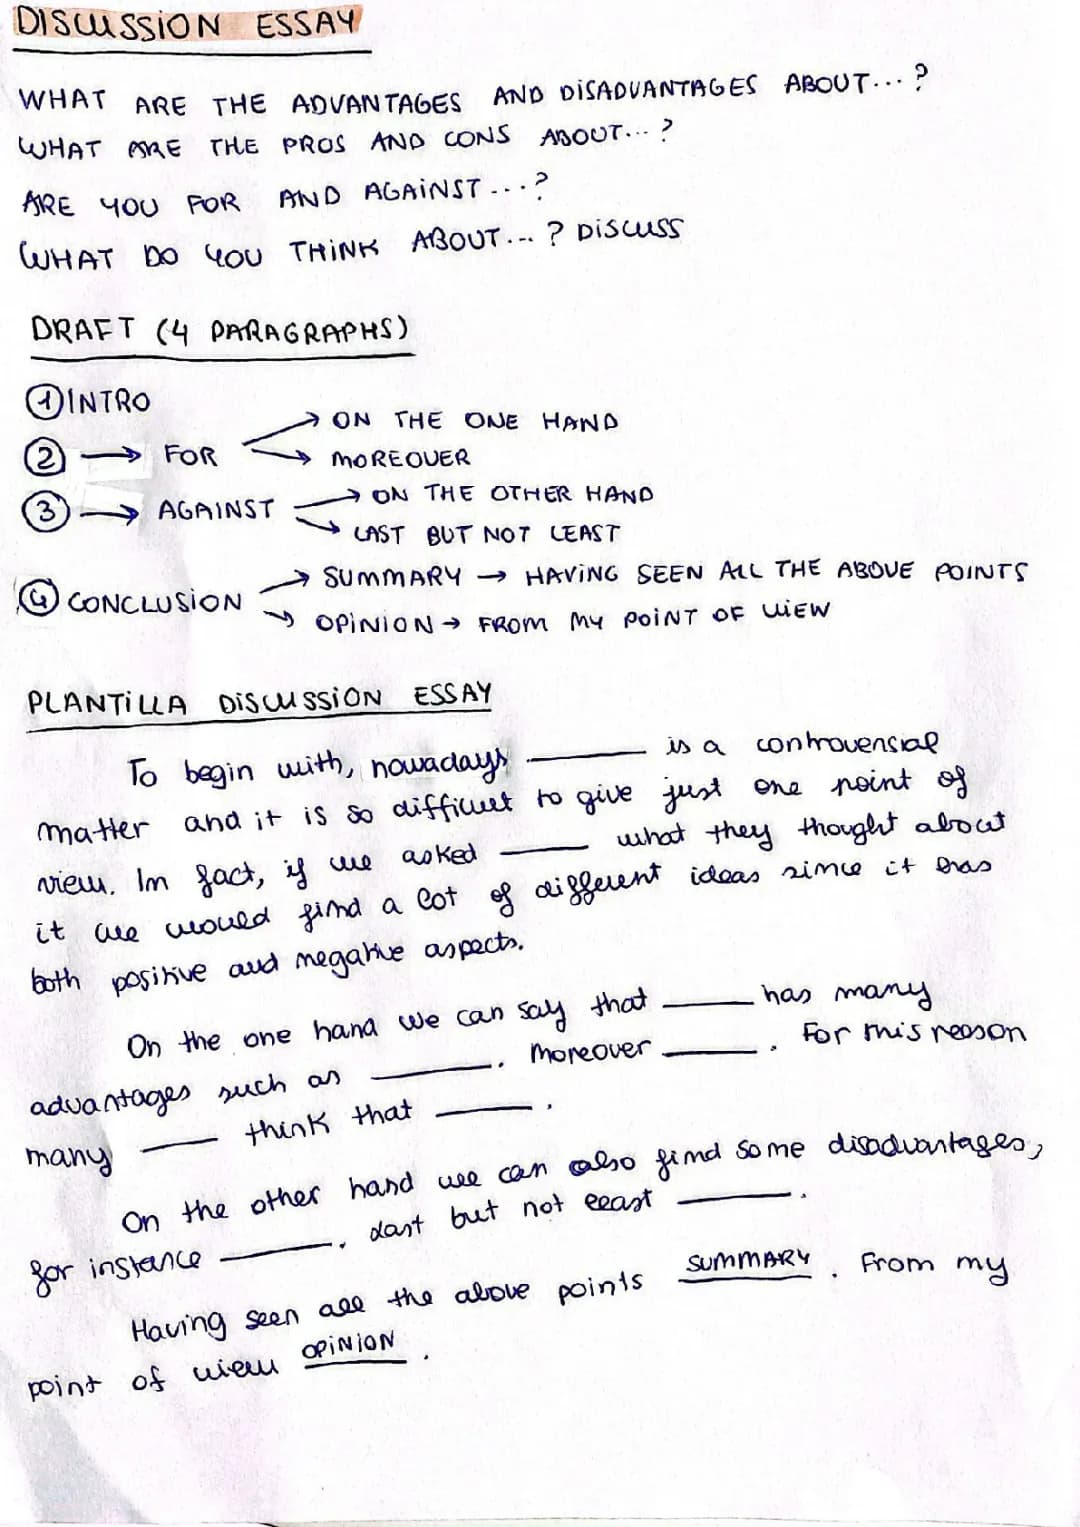 DISCUSSION ESSAY
WHAT ARE THE ADVANTAGES AND DISADVANTAGES ABOUT...?
WHAT ARE THE PROS AND CONS ABOUT...?
ARE YOU FOR AND AGAINST...?
WHAT DO YOU THINK ABOUT...? DISCUSS
DRAFT (4 PARAGRAPHS)
① INTRO
② → FOR → ON THE ONE HAND
→ MOREOVER
③ → AGAINST → ON THE OTHER HAND
→ LAST BUT NOT LEAST
④ CONCLUSION → SUMMARY → HAVING SEEN ALL THE ABOVE POINTS
→ OPINION → FROM MY POINT OF VIEW
PLANTILLA DISCUSSION ESSAY
To begin with, nowadays ____ is a controversial
matter and it is so difficult to give just one point of
view. In fact, if we asked ____ what they thought about
it we would find a lot of different ideas since it has
both positive and negative aspects.
On the one hand we can say that ____ has many
advantages such as ____. Moreover ____. For this reason
many ____ think that ____.
On the other hand we can also find some disadvantages,
for instance ____. Last but not least ____.
Having seen all the above points SUMMARY. From my
point of view OPINION.